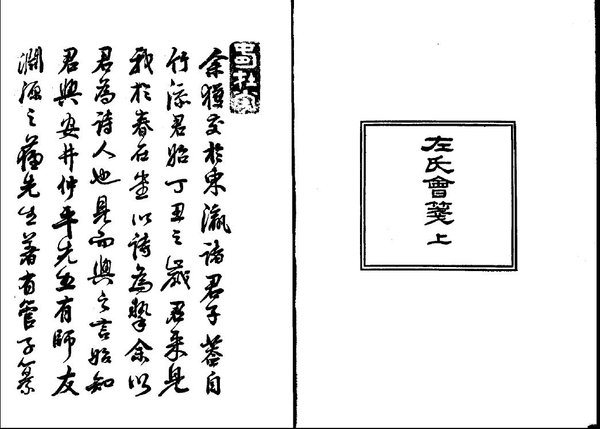 左氏會箋 上
余獲交於東瀛諸君子蓋自
竹添君始丁丑之歲君來見
我於春在堂以詩為摯余以
君為詩人也既而與之言始知
君與安井仲平先生有師友
淵源之舊先生著有管子纂